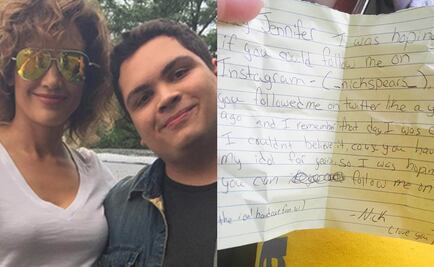 Jennifer I was hoping
if you could follow me on
Instagram - (_nickspears_)
you followed me on twitter like a y
ago and I remember that day I was
I couldn't believe it, cous you have
my idol for years. So I was hopin
you can follow me on
the
-Nick
(love you)